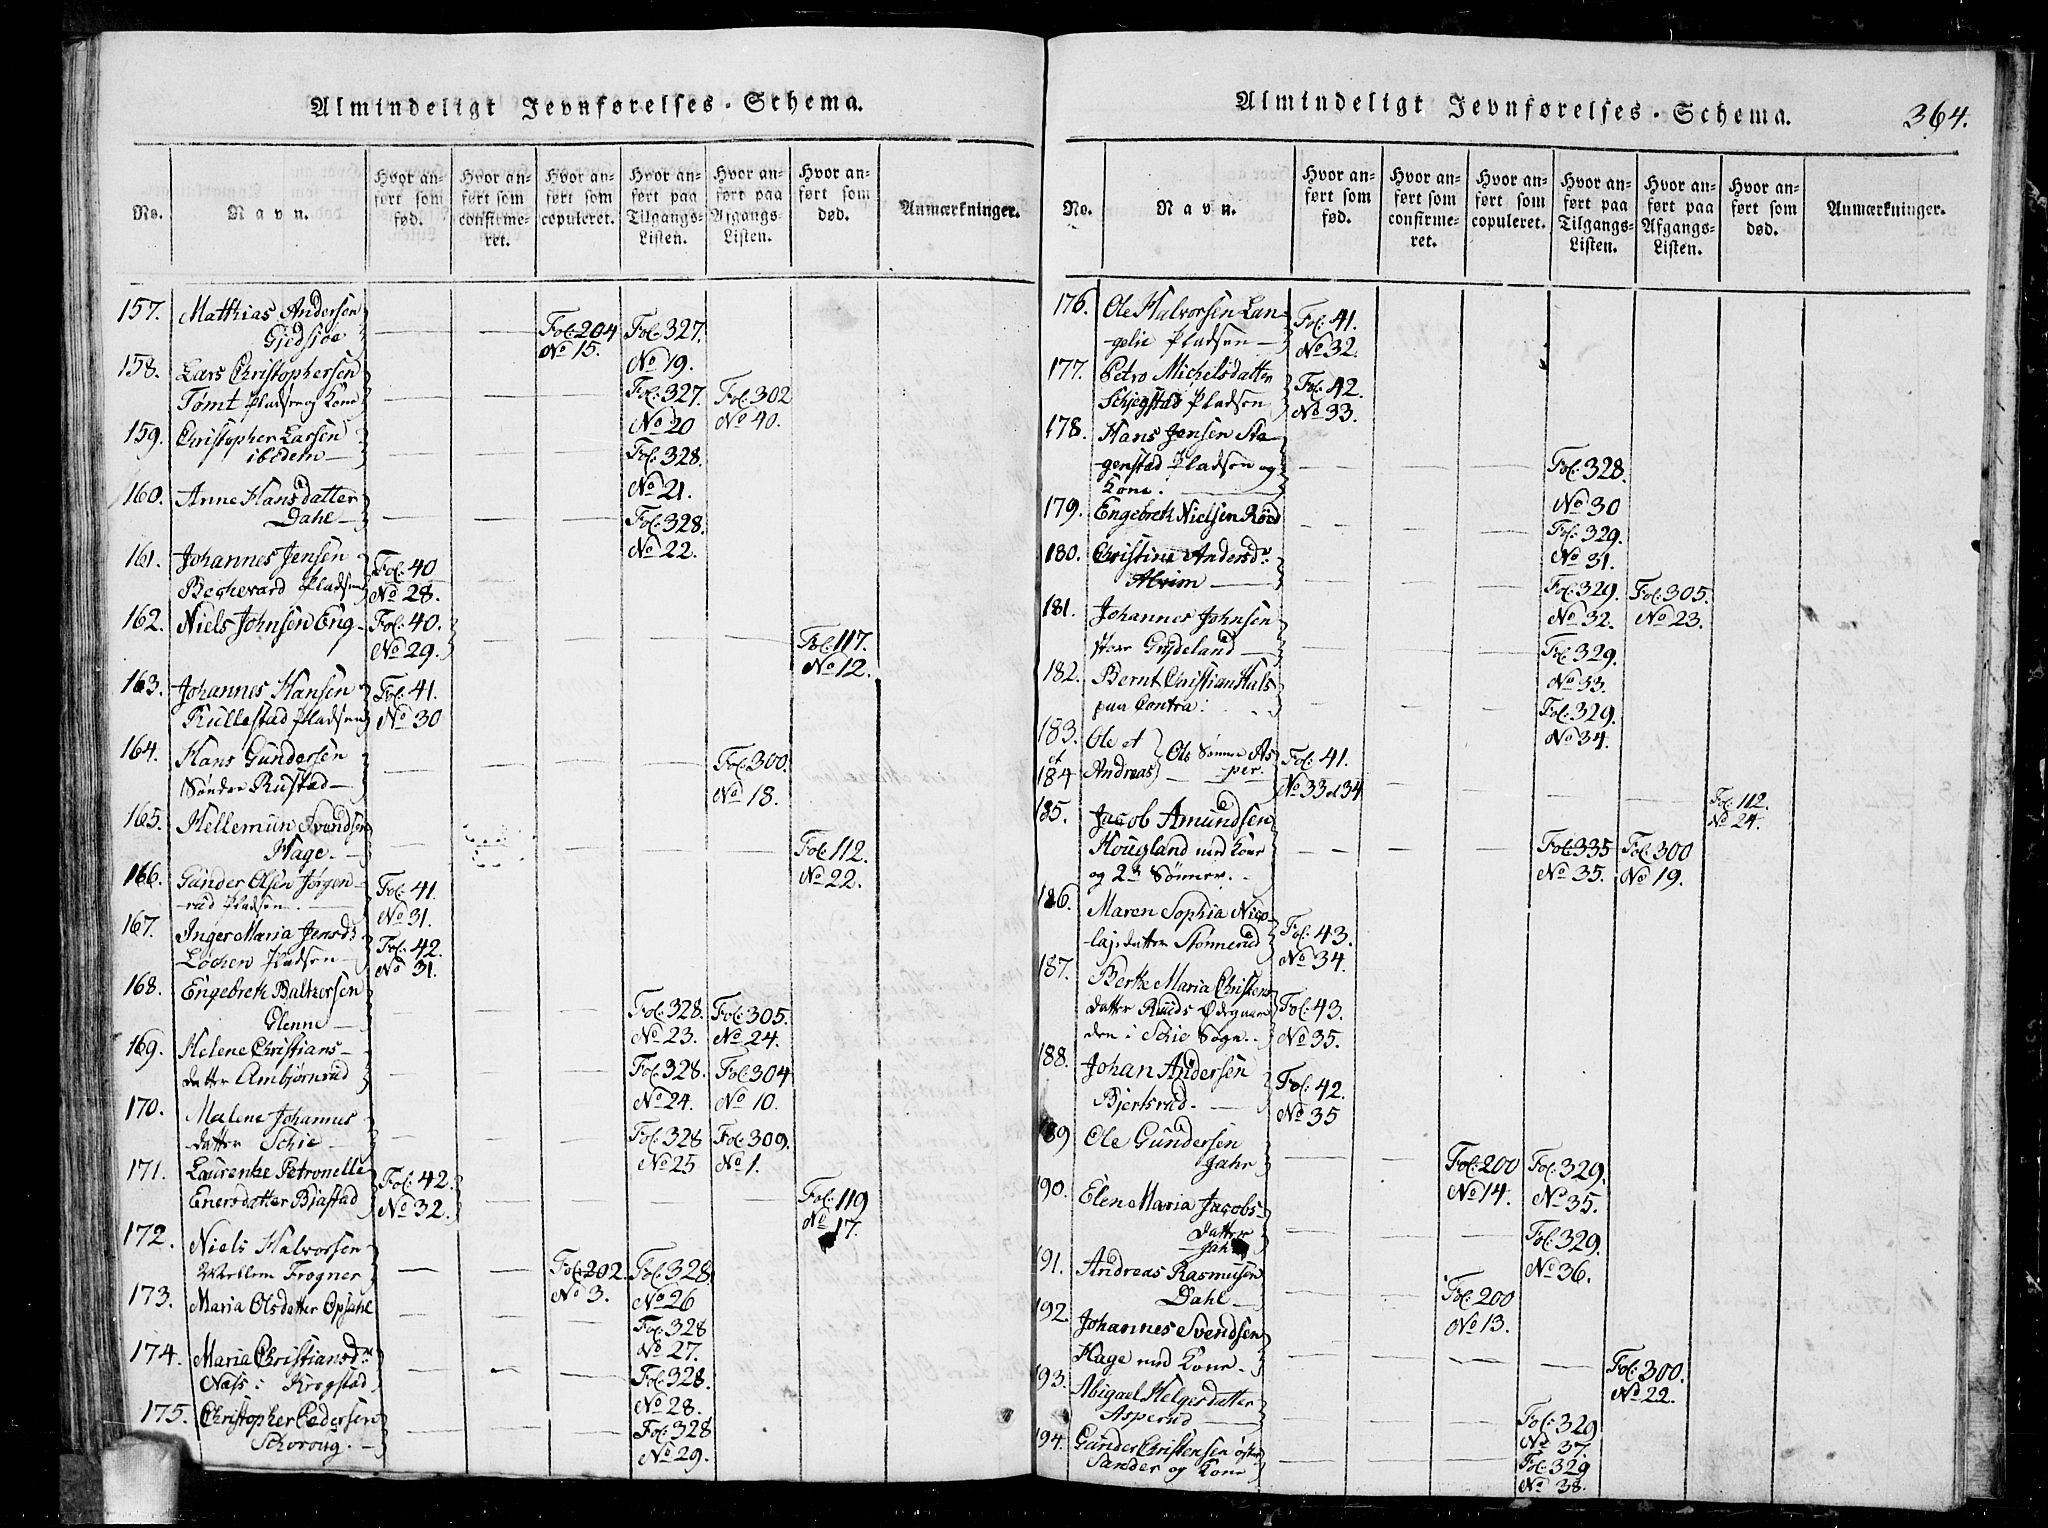 Almindeligt Jevnførelses-Schema.
No. Navn. Hvor anført som fød. Hvor anført som confirmeret. Hvor anført som copuleret. Hvor anført paa Tilgangs-Listen. Hvor anført paa Afgangs-Listen. Hvor anført som død. Anmærkninger.
157. Mathias Andersen
Gjedsjøe — — Fol: 204 Fol: 327.
No 15. No 19.
158. Lars Christophersen
Tømt Pladsen og Kone — — — Fol: 327. Fol: 302
No 20 No 40.
159. Christopher Larsen
ibidem — — — — Fol: 328.
No 21.
160. Anne Hansdatter
Dahl — — — — Fol: 328.
No 22.
161. Johannes Jensen Fol: 40
Pladsen No 28.
162. Niels Johnsen Eng — Fol: 40. — — — — Fol: 117.
No 29. No 12.
163. Johannes Hansen Fol: 41.
Rullestad Pladsen No 30
164. Hans Gundersen
Søndre Rustad — — — — — Fol: 300.
No 18.
165. Hellemun Svendsen
Hage. — — — — — — Fol: 112.
No 22.
166. Gunder Olsen Jørgen- Fol: 41.
rud Pladsen. — No 31.
167. Inger Maria Jensdr Fol: 42.
Løchen Pladsen — No 31.
168. Engebreth Baltzersen
Glenne — — — — Fol: 328. Fol: 305.
No 23. No 24.
169. Helene Christians-
datter Ambjørnrud — — — Fol: 328. Fol: 304
No 24. No 10.
170. Malene Johannes
datter Schie — — — — Fol: 328 Fol: 309.
No 25 No 1.
171. Laurentze Petronelle Fol: 42.
Enersdatter Bjastad No 32. — — — — Fol: 119
No 17.
172. Niels Halvorsen
Mellem Frogner — — Fol: 202. Fol: 328
No 3. No 26
173. Maria Olsdatter Opsahl — — — Fol: 328
No 27.
174. Maria Christiansdr
Næss i Krogstad — — — Fol: 328.
No 28.
175. Christopher Pedersen
Schoroug. — — — — Fol: 328
No 29.
Almindeligt Jevnførelses-Schema. 364.
No. Navn. Hvor anført som fød. Hvor anført som confirmeret. Hvor anført som copuleret. Hvor anført paa Tilgangs-Listen. Hvor anført paa Afgangs-Listen. Hvor anført som død. Anmærkninger.
176. Ole Halvorsen Lan- Fol: 41.
gelie Pladsen — No 32.
177. Petro Michelsdatter Fol: 42.
Schjegstad Pladsen No 33.
178. Hans Jensen Sta-
genstad Pladsen og — — — Fol: 328.
Kone. No 30
179. Engebreth Nielsen Røed — — — Fol: 329.
No 31.
180. Christine Andersdr
Alrim — — — — Fol: 329. Fol: 305.
No 32. No 23.
181. Johannes Johnsen
store Grydeland — — — — Fol: 329.
No 33.
182. Bernt Christian Hals
paa Contra. — — — Fol: 329.
No 34.
183. Ole et
et Ols Sønner As Fol: 41.
184 Andreas — per. No 33 et 34 — — — — Fol: 112.
No 24.
185. Jacob Amundsen
Hougland med Kone — — — Fol: 335 Fol: 300
og 2de Sønner. — No 35. No 19.
186. Maren Sophia Nico- Fol: 43.
lajsdatter Stønnerud No 34.
187. Berte Maria Christens
datter Ruuds Ødegaar Fol: 43.
den i Schie Sogn. No 35.
188. Johan Andersen Fol: 42.
Bjertsrud. — No 35
189 Ole Gundersen
Jahr — — Fol: 200 Fol: 329.
No 14. No 35.
190. Elen Maria Jacobs-
datter
Jahr — — — Fol: 329.
No 36.
191. Andreas Rasmusen
Dahl — — — Fol: 200
No 13.
192. Johannes Svendsen
Hage med Kone. — — — — — Fol: 300.
No 22.
193. Abigael Helgesdatter
Asperud — — — — Fol: 329
No 37.
194. Gunder Christensen østre
Sander og Kone — — — Fol: 329
No 38.